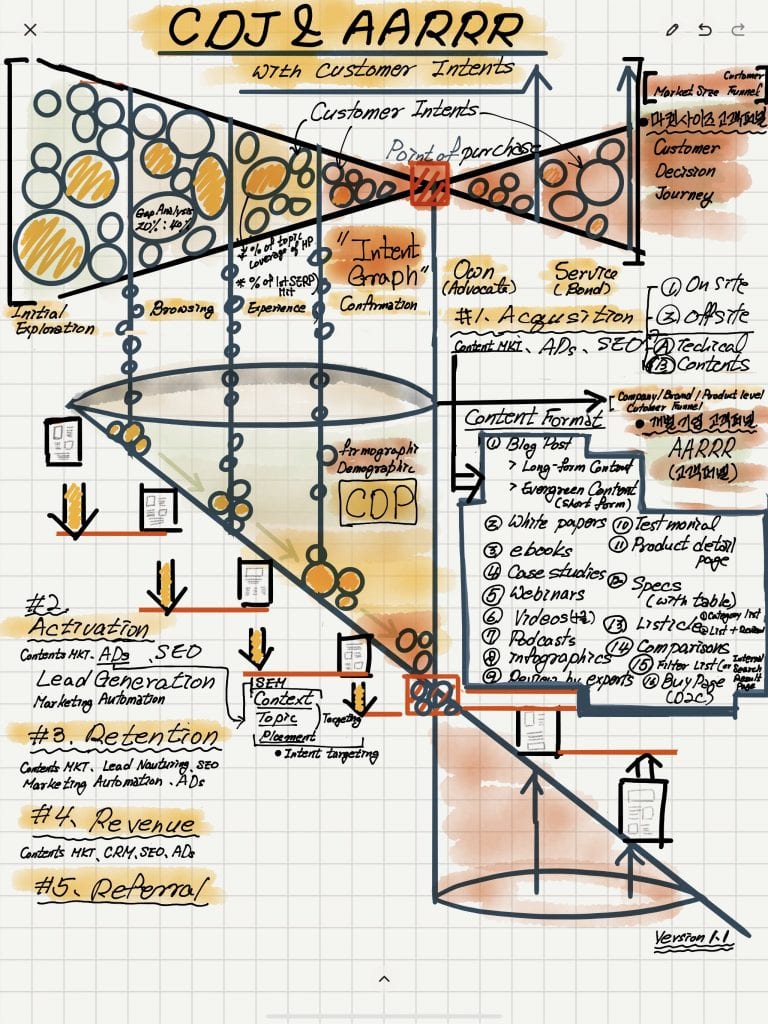 CDJ & AARRR
with Customer Intents
Customer Intents
Point of purchase
Customer
Market Size Funnel
• 마켓사이즈 고객퍼널
Customer
Decision
Journey
Gap Analysis
20% : 40%
* % of topic
coverage of HP
* % of 1st SERP
Hit
"Intent
Graph"
Initial
Exploration
Browsing
Experience
Confirmation
Own
(Advocate)
Service
(Bond)
#1. Acqusition
Content MKT, ADs, SEO
① On Site
② Offsite
Ⓐ Techical
Ⓑ Contents
Company/Brand/Product level
Customer Funnel
• 개별기업 고객퍼널
AARRR
(고객퍼널)
Firmographic
Demographic
CDP
Content Format
① Blog Post
> Long-form Content
> Evergreen Content
(Short form)
② White papers
③ ebooks
④ Case studies
⑤ Webinars
⑥ Videos
⑦ Podcasts
⑧ infographics
⑨ Review by experts
⑩ Testimonial
⑪ Product detail
page
⑫ Specs
(with table)
⑬ Listicle
① Category list
② List + Review
⑭ Comparisons
⑮ Filter List (or Internal
Search
Result
Page
⑯ Buy Page
(D2C)
#2.
Activation
Contents MKT, ADs, SEO
Lead Generation
Marketing Automation
SEM
Context
Topic
Placment
Targeting
• Intent targeting
#3. Retention
Contents MKT, Lead Nauturing, SEO
Marketing Automation, ADs
#4. Revenue
Contents MKT, CRM, SEO, ADs
#5. Referral
Version 1.1